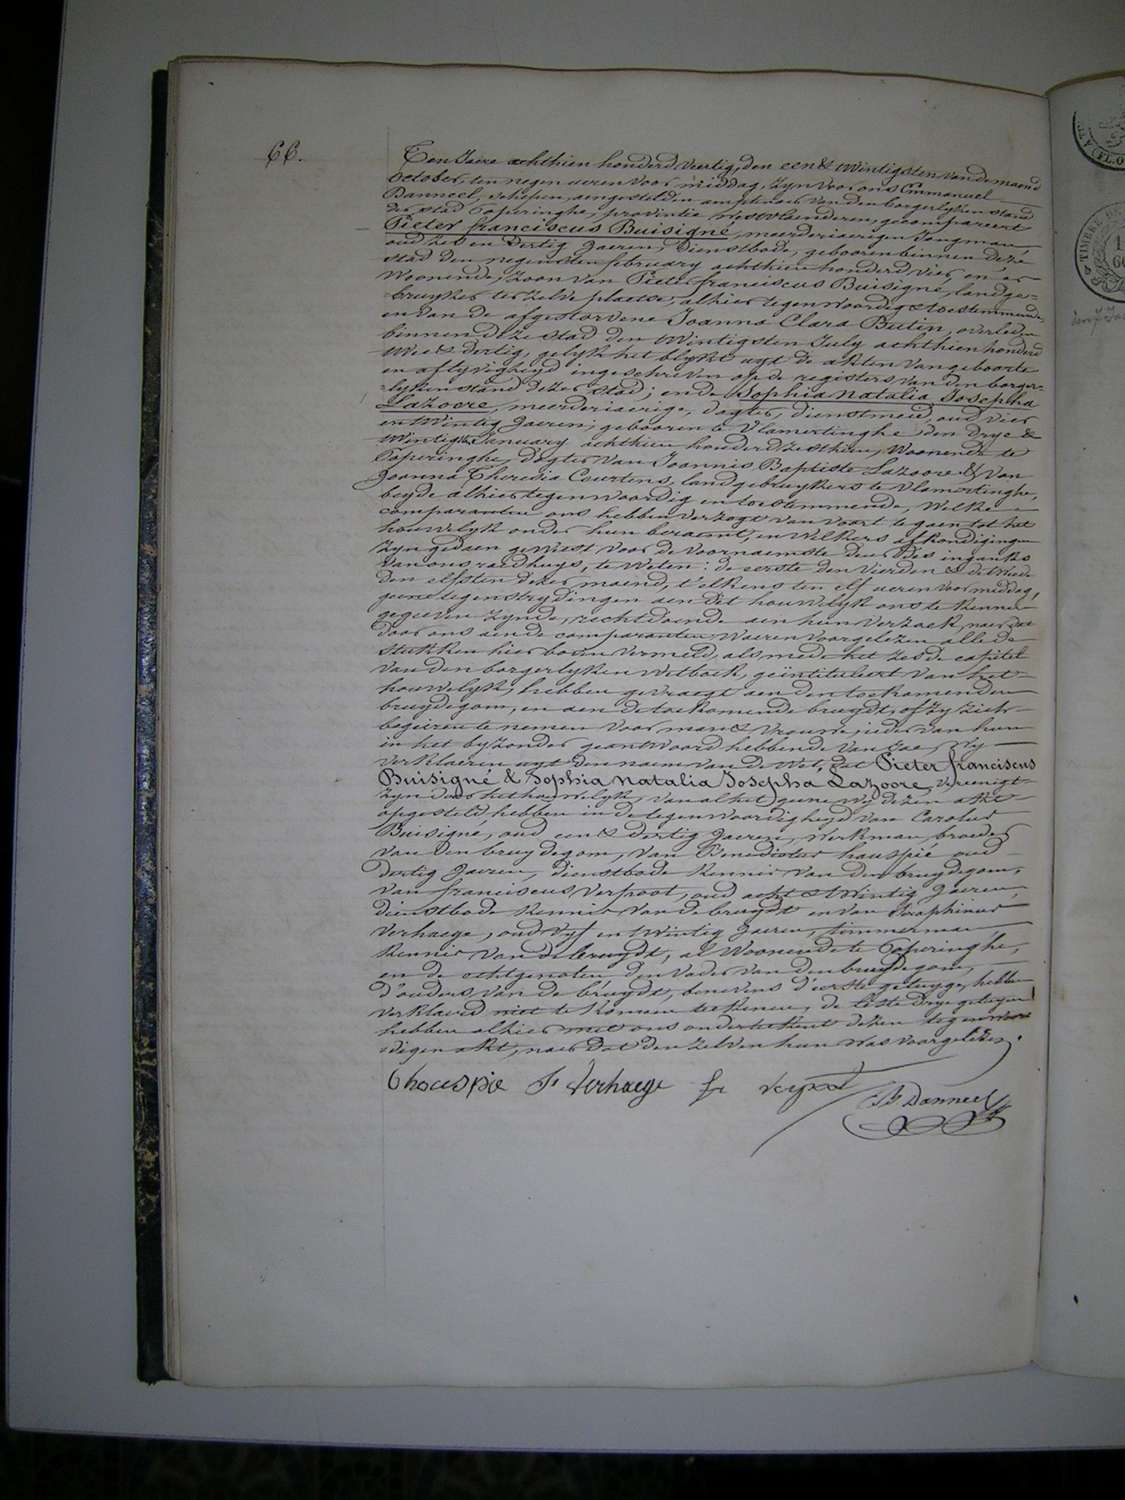 66.
Ten Jaere achthien honderd veertig, den een & twintigsten van de maend
October, ten negen ueren voor middag, zyn voor ons Emmanuel
Danneel, schepen, aengestelden amptenaer van den borgerlyken stand
der stad Poperinghe, provintie westvlaenderen, gecompareert
Pieter franciscus Buisigné, meerderjaerigen Jongman,
oud zes en dertig Jaeren, Dienstbode, geboren binnen deze
stad den negensten february achthien honderd vier en er
woonende, zoon van Pieter franciscus Buisigné, landge-
bruyker ter zelve plaetse, alhier tegenwoordig & toestemmende
en van de afgestorvene Joanna Clara Butin, overleden
binnen deze stad den twintigsten July achthien honderd
twee & dertig, gelyk het blykt uyt de akten van geboorte
en aflyvigheyd ingeschreven op de registers van den borger-
lyken stand dezer stad; en de Sophia Natalia Josepha
Lazoore, meerderjaerige, dogter, dienstmeid, oud vier
en twintig Jaeren, geboren te Vlamertinghe den drye &
twintig January achthien honderd zesthien, woonende te
Poperinghe, dogter van Joannis Baptiste Lazoore & van
Joanna Theresia Courtens, landgebruykers te Vlamertinghe,
beyde alhier tegenwoordig en toestemmende, welke
comparanten ons hebben verzogt van voort te gaen tot het
houwelyk onder hun beraemt, en welkers afkondigingen
zyn gedaen geweest voor de voornaemste deur des ingangks
van ons raedhuys, te weten: de eerste den vierden & de tweede
den elfsten dezer maend, t'elkens ten elf ueren voormiddag,
geene tegenstrydingen aen dit houwelyk ons te kennen
gegeven zynde, rechtdoende aen hun verzoek, naer dat
door ons aen de comparanten waeren voorgelezen alle de
stukken hier boven vermeld, als mede het zesde capittel
van den borgerlyken wetboek, geïntituleert van het
houwelyk, hebben gevraegt aen den toekomenden
bruydegom, en aen de toekomende bruydt, of zy zich
begeiren te nemen voor man & vrouw, ieder van hun
in het byzonder geantwoord hebbende van Jae, wy
verklaeren uyt den naem van de wet, dat Pieter franciscus
Buisigné & Sophia Natalia Josepha Lazoore, vereenigt
zyn door het houwelyk, van al het geene wy dezen akt
opgesteld hebben in de tegenwoordigheyd van Carolus
Buisigné, oud een & dertig Jaeren, werkman, broeder
van den bruydegom, van Benedictus houspié oud
dertig Jaeren, dienstbode kennis van den bruydegom,
van franciscus Verpoot, oud acht & twintig Jaeren,
dienstbode kennis van de bruydt en van Seraphinus
Verhaege, oud vyf en twintig Jaeren, timmerman,
kennis van de bruydt, al woonende te Poperinghe,
en de echtgenoten den vader van den bruydegom,
d'ouders van de bruydt, benevens d'eerste getuyge, hebben
verklaerd niet te konnen teekenen, de leste drye getuygen
hebben alhier met ons onderteekent dezen tegenwoor
digen akt, naer dat den zelven hun was voorgelezen.
B houspie S. Verhaege fr verpoot
E Danneel
TIMBRE